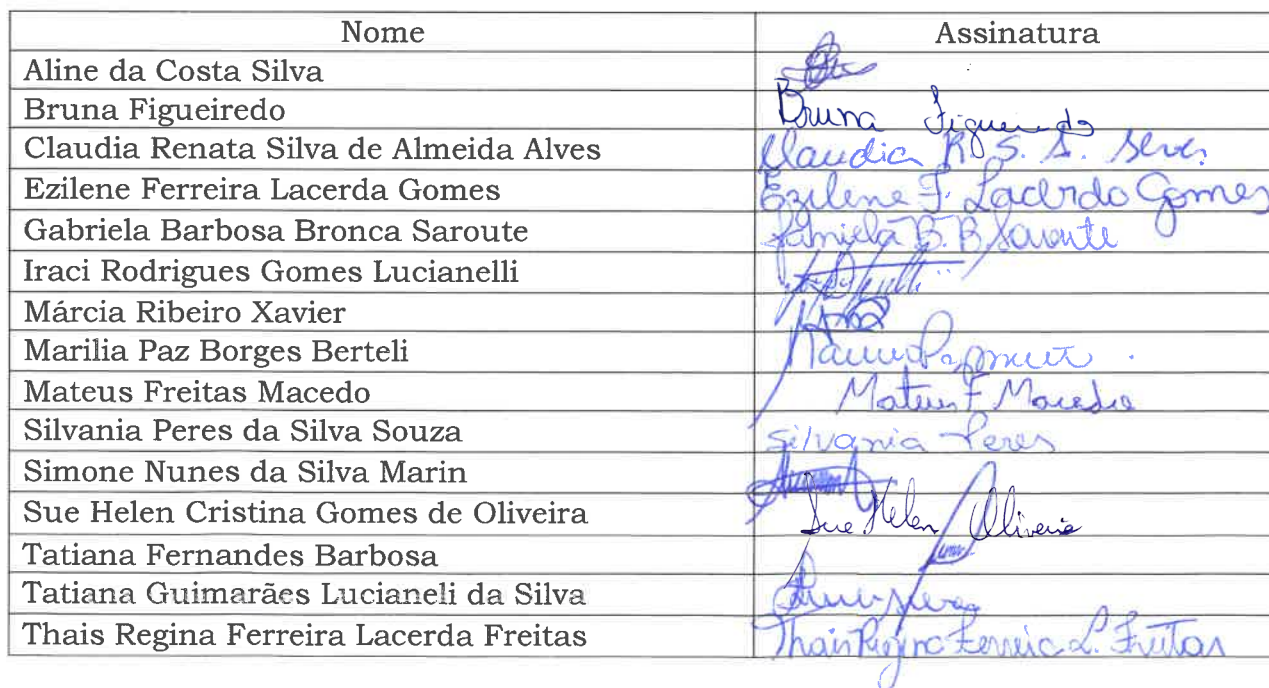 Nome Assinatura
Aline da Costa Silva
Bruna Figueiredo Bruna Figueiredo
Claudia Renata Silva de Almeida Alves Claudia R. S. A. Alves
Ezilene Ferreira Lacerda Gomes Ezilene F. Lacerda Gomes
Gabriela Barbosa Bronca Saroute Gabriela B. B. Saroute
Iraci Rodrigues Gomes Lucianelli
Márcia Ribeiro Xavier
Marilia Paz Borges Berteli
Mateus Freitas Macedo Mateus F Macedo
Silvania Peres da Silva Souza Silvania Peres
Simone Nunes da Silva Marin
Sue Helen Cristina Gomes de Oliveira Sue Helen Oliveira
Tatiana Fernandes Barbosa
Tatiana Guimarães Lucianeli da Silva
Thais Regina Ferreira Lacerda Freitas Thais Regina Ferreira L. Freitas